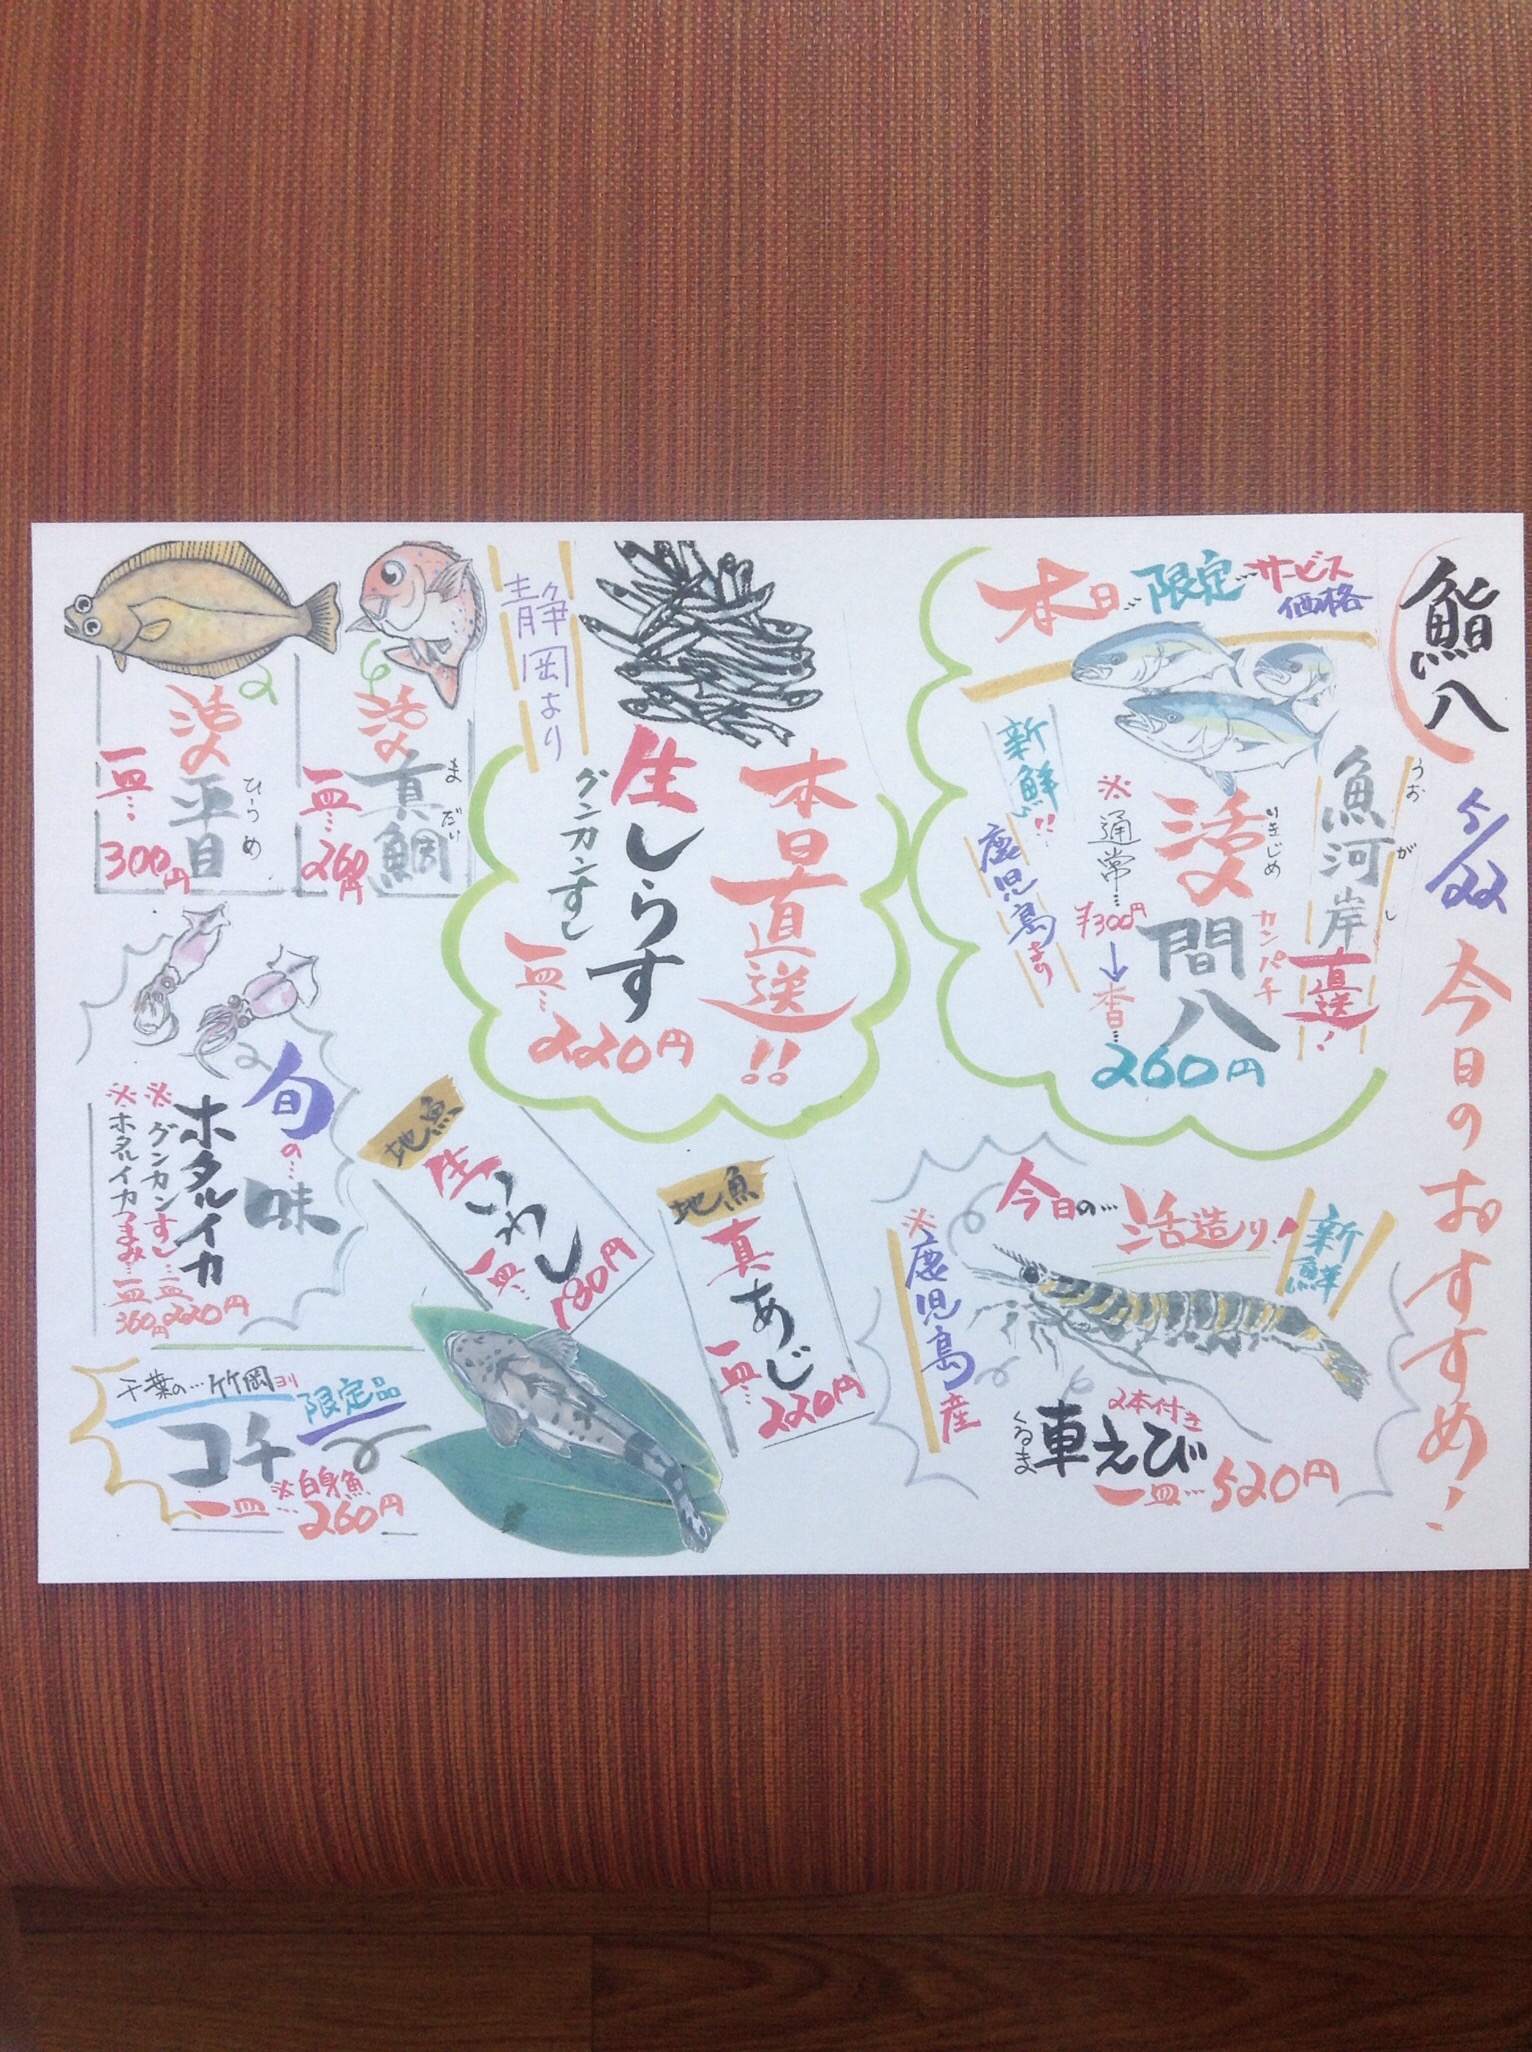 鮨八
5/22
今日のおすすめ!
本日…限定…サービス
価格
魚河岸
うおがし
直送!
活〆
いきじめ
間八
カンパチ
※通常…
¥300円
↓
本日…
260円
新鮮!!
鹿児島より
今日の…活造り!
新鮮
※鹿児島産
車えび
くるま
2本付き
一皿…520円
本日直送!!
生しらす
グンカンすし
一皿…
220円
静岡より
地魚
真あじ
一皿…
220円
地魚
生いわし
一皿…
180円
活〆
真鯛
まだい
一皿…
260円
活〆
平目
ひらめ
一皿…
300円
旬の…味
ホタルイカ
※グンカンすし…一皿220円
※ホタルイカつまみ…一皿360円
千葉の…竹岡ヨリ
限定品
コチ
※白身魚
一皿…260円